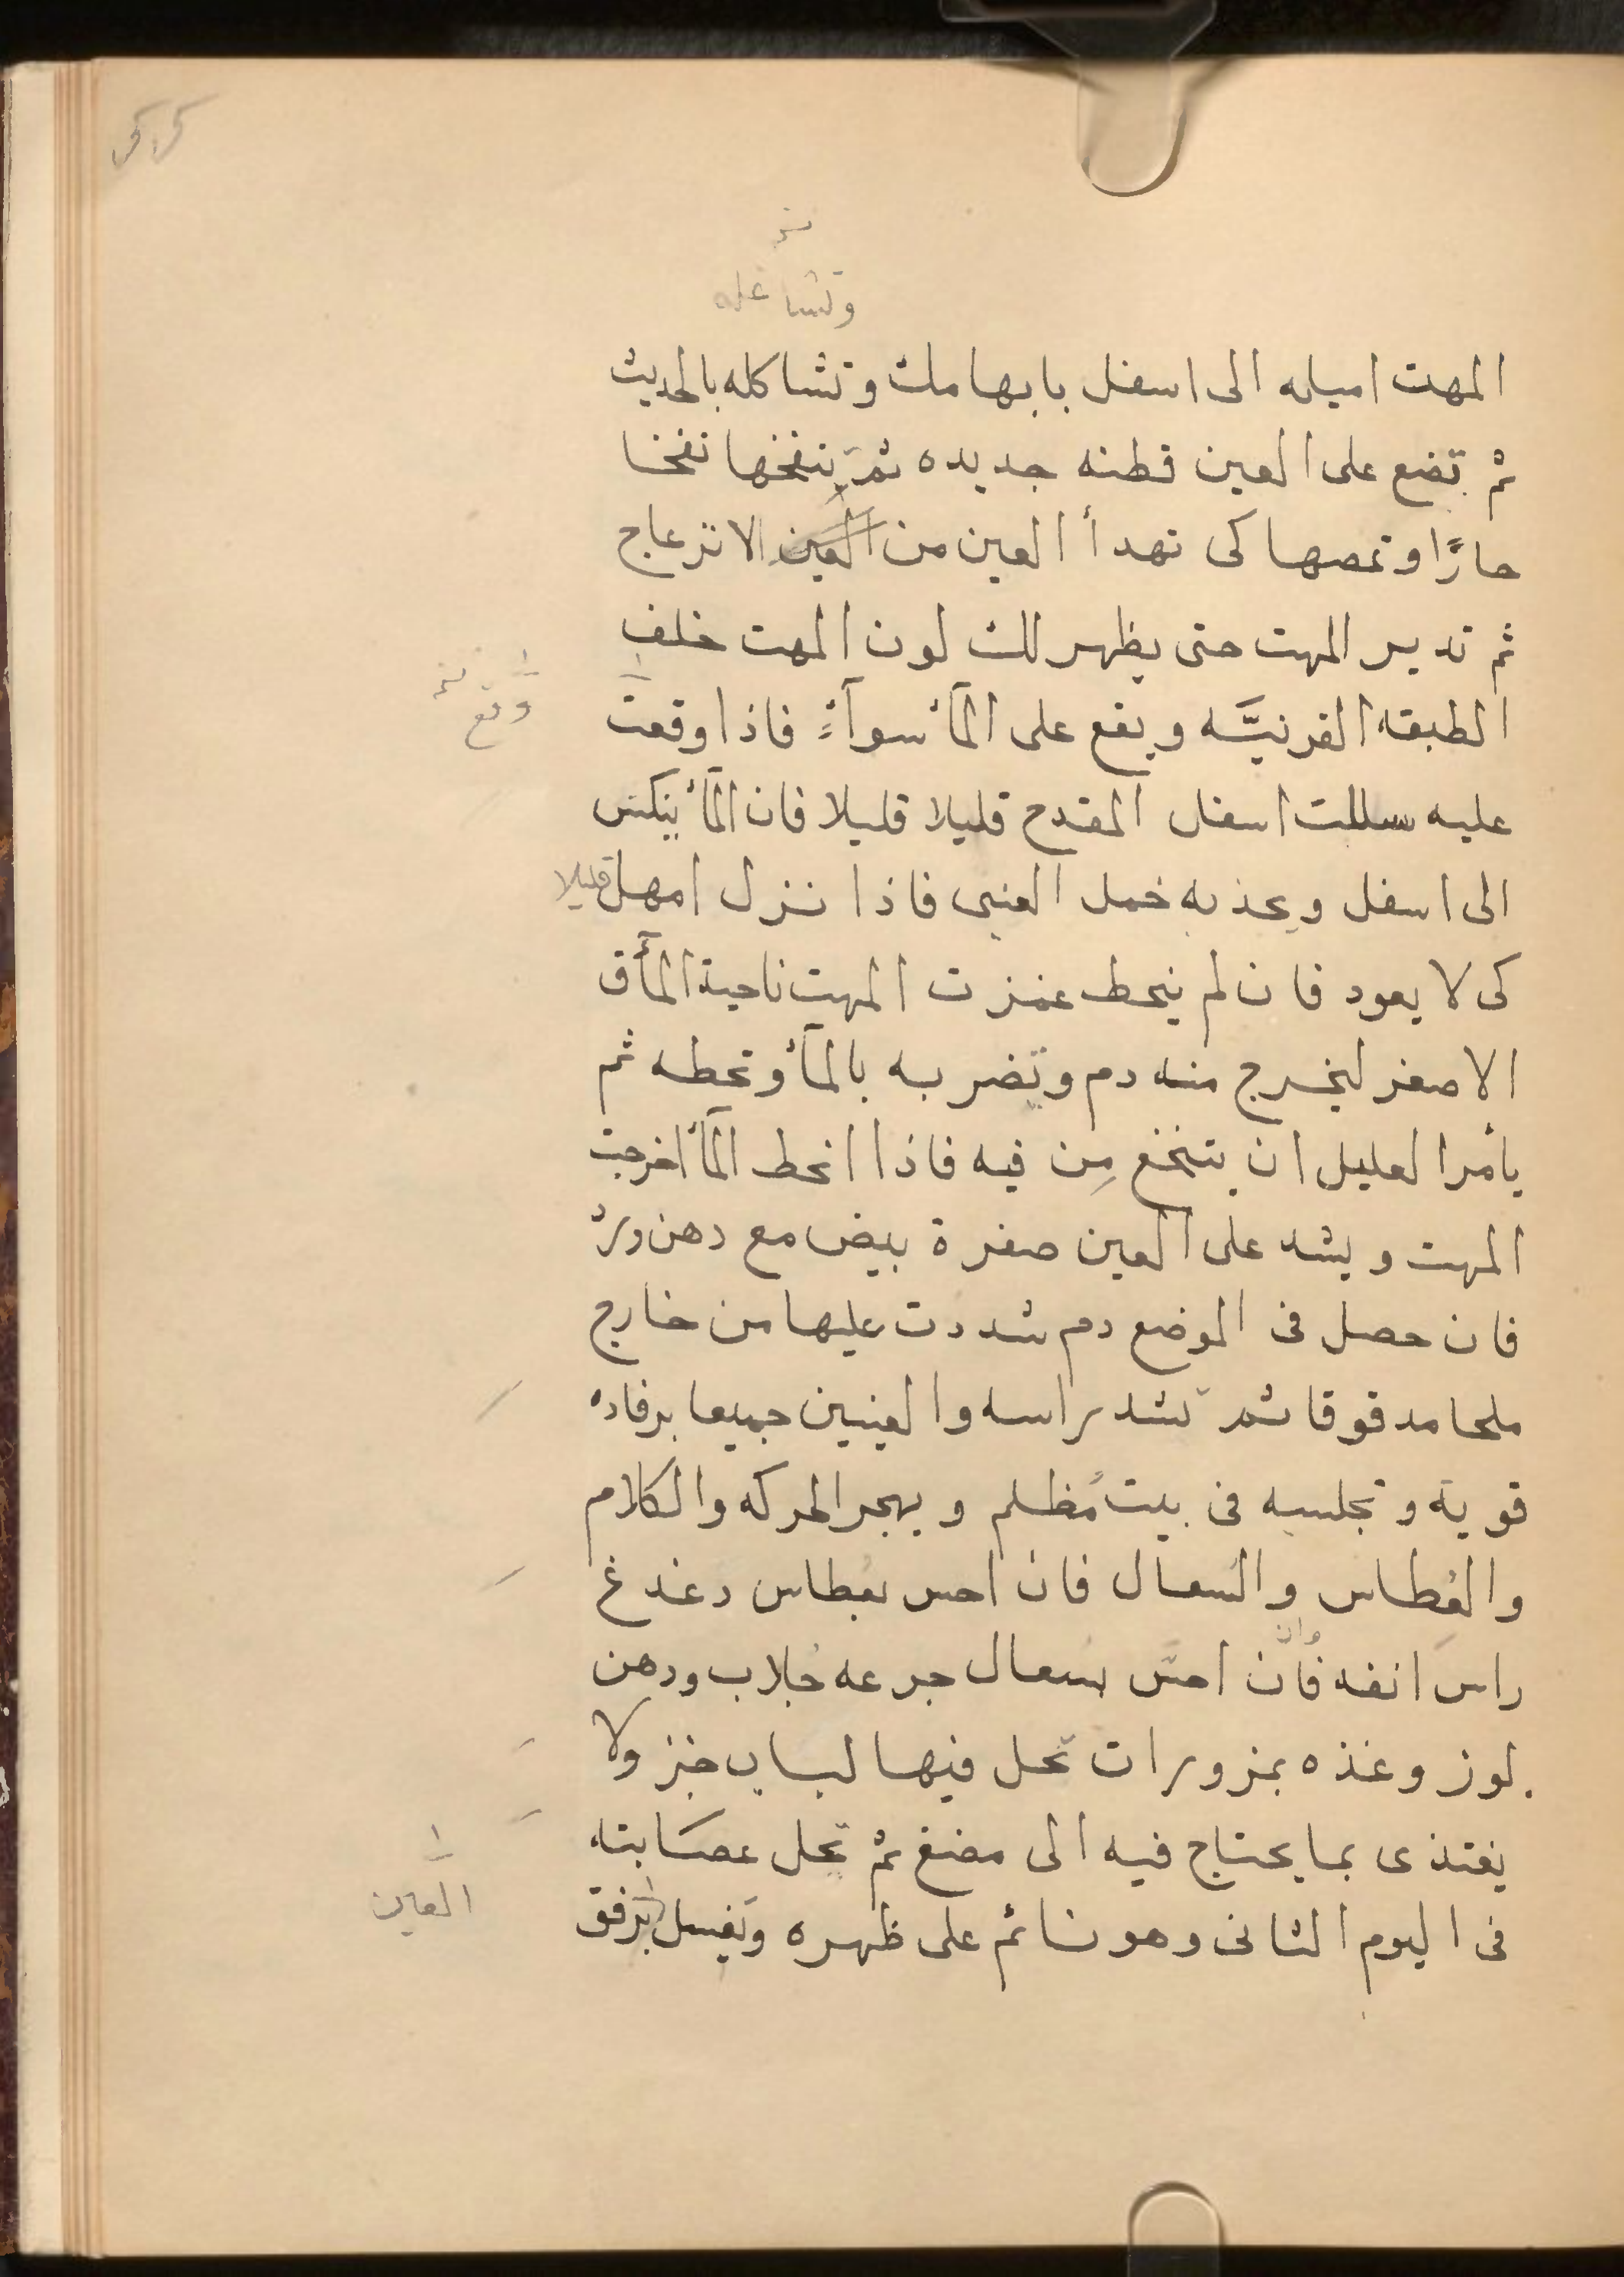 وتشاغله
المهت اميله الى اسفل بابهامك وتشاكله بالحديث
ثم تضع على العين قطنه جديده ثم ينفخها نفخا
حارًّا وتمصها كى تهدأ العين من العين الانزعاج
ثم تدير المهت حتى يظهر لك لون المهت خلف
الطبقه القرنيَّه ويقع على المآء سوآءً فاذا وقعت
وقع
عليه سللت اسفل المقدح قليلا قليلا فان المآء ينكس
الى اسفل ويجذبه خمل العنبى فاذا نزل امهل قليلا
كى لا يعود فان لم ينحط غمزت المهت ناحية المأق
الاصغر ليخرج منه دم وتضربه بالمآء وتحطه ثم
يأمر العليل ان يتنخع مِن فيه فاذا انحط المآء اخرجت
المهت ويشد على العين صفرة بيض مع دهن ورد
فان حصل فى الموضع دم شددت عليها من خارج
ملحا مدقوقا ثم تشد راسه والعينين جميعا برفاده
قوية وتجلسه فى بيت مُظلم ويهجر الحركه والكلام
والعُطاس والسُعال فان احس بعُطاس دغدغ
وان
راس انفه فان احسّ بسعال جرعه جُلاب ودهن
لوز وغذه بمزورات تحل فيها لباب خبز ولا
يغتذى بما يحتاج فيه الى مضغ ثم تحل عصَابته
فى اليوم الثانى وهو نائم على ظهره وتغسل برفق
العين